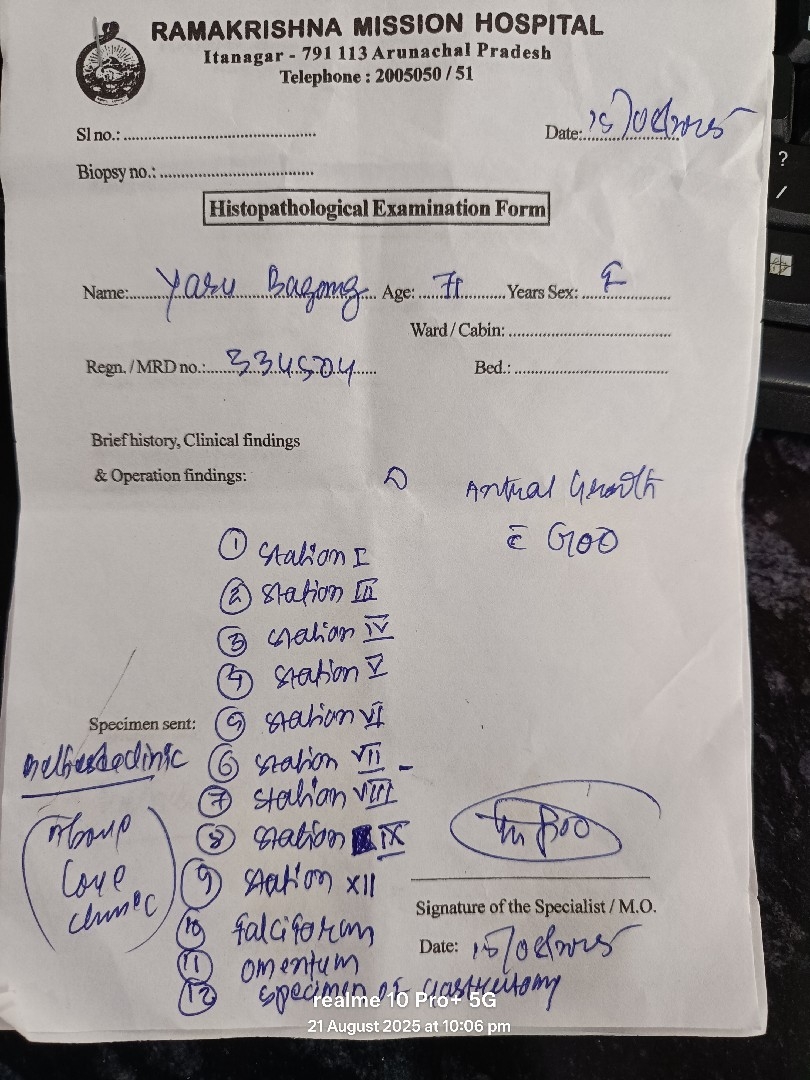 RAMAKRISHNA MISSION HOSPITAL
Itanagar - 791 113 Arunachal Pradesh
Telephone : 2005050 / 51
Sl no.:
Date: 15/08/2025
Biopsy no.:
Histopathological Examination Form
Name: Yasu Bagang Age: 71 Years Sex: F
Ward / Cabin:
Regn. / MRD no.: 334504
Bed.:
Brief history, Clinical findings
& Operation findings:
Antral Growth
c̄ GOO
① Station I
② Station III
③ Station IV
④ Station V
Specimen sent: ⑤ Station VI
⑥ Station VII -
⑦ Station VIII
⑧ Station IX
⑨ Station XII
Care
clinic
Signature of the Specialist / M.O.
⑩ falciform
Date: 15/08/2025
⑪ omentum
⑫ specimen of Gastrectomy
realme 10 Pro+ 5G
21 August 2025 at 10:06 pm
?
/